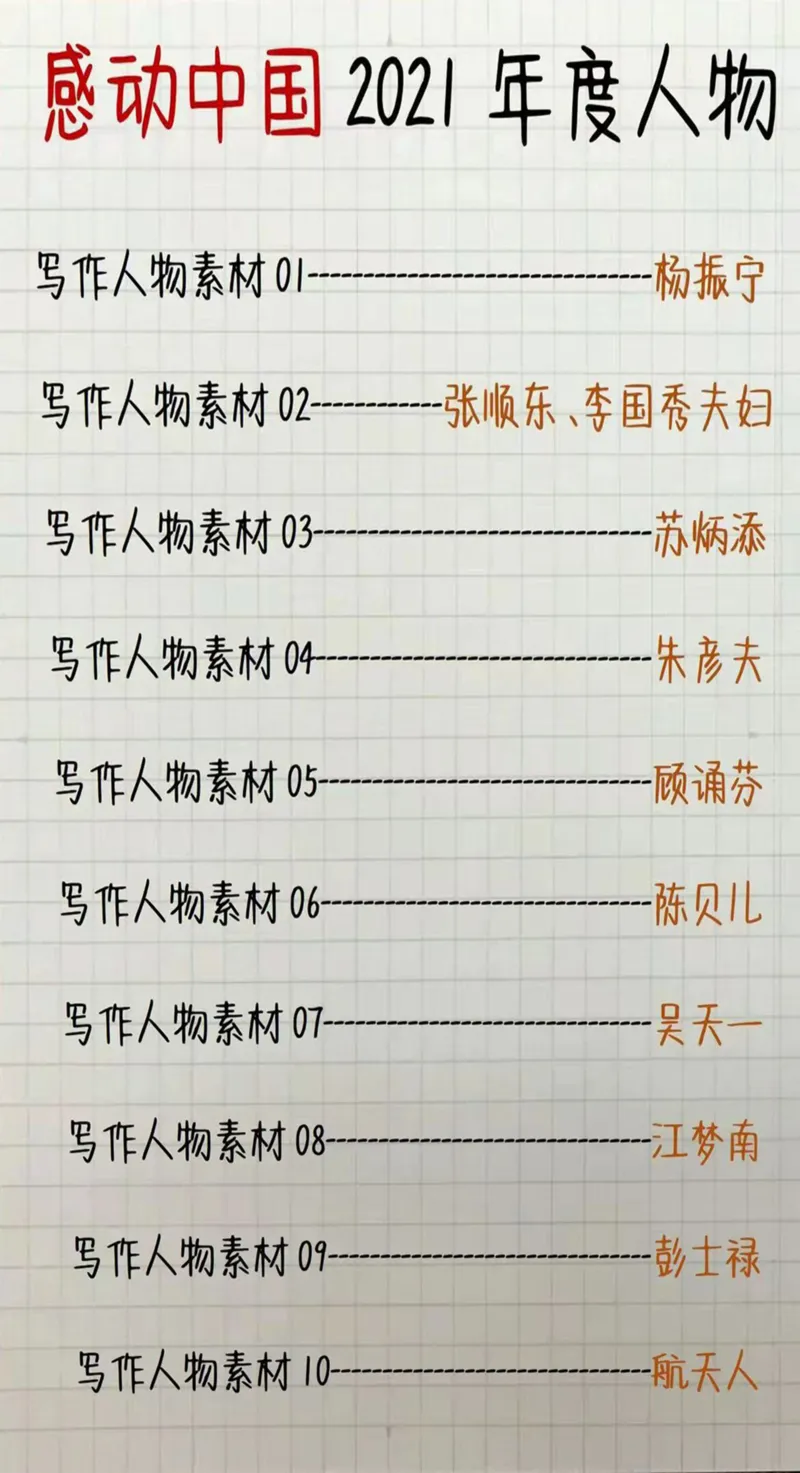 感动中国 2021 年度人物
写作人物素材 01------------------------------杨振宁
写作人物素材 02-----------张顺东、李国秀夫妇
写作人物素材 03------------------------------苏炳添
写作人物素材 04------------------------------朱彦夫
写作人物素材 05------------------------------顾诵芬
写作人物素材 06------------------------------陈贝儿
写作人物素材 07------------------------------吴天一
写作人物素材 08------------------------------江梦南
写作人物素材 09------------------------------彭士禄
写作人物素材 10------------------------------航天人